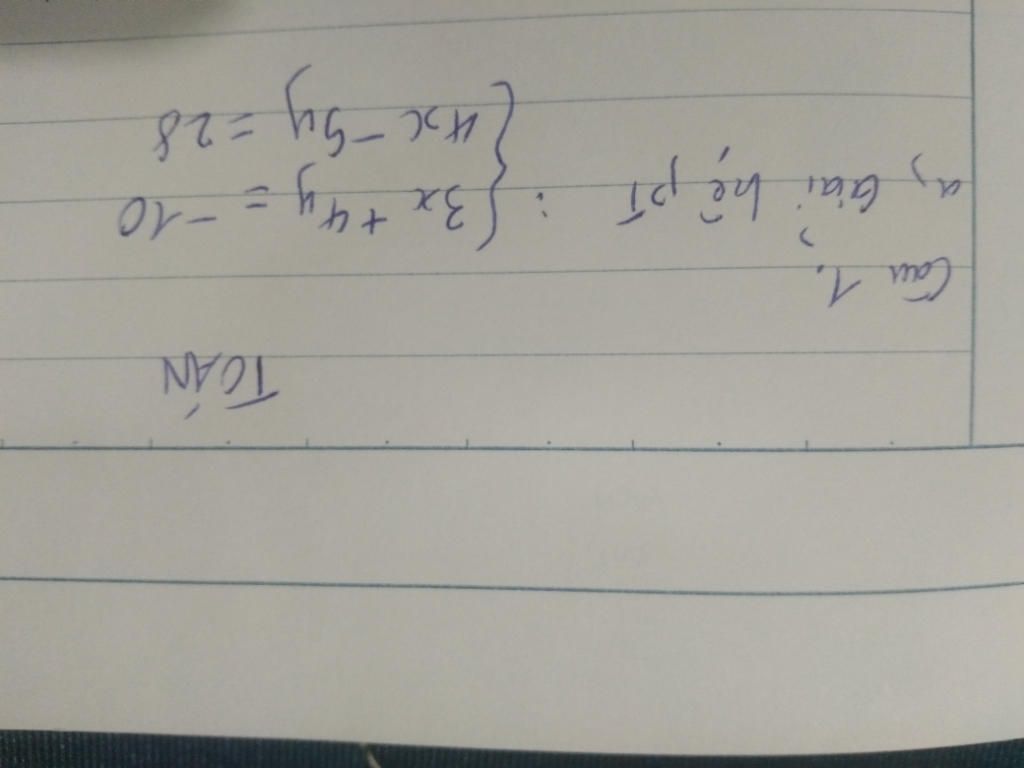 TOÁN
Câu 1.
a, Giải hệ pT : {3x + 4y = -10
{4x - 5y = 28